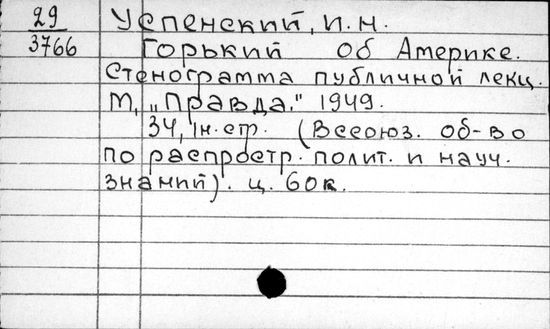 29
3766
Успенский, И.Н.
Горький об Америке.
Стенограмма публичной лекц.
М, „Правда." 1949.
34, 1н.стр. (Всесоюз. об-во
по распростр. полит. и науч.
знаний). ц. 60к.